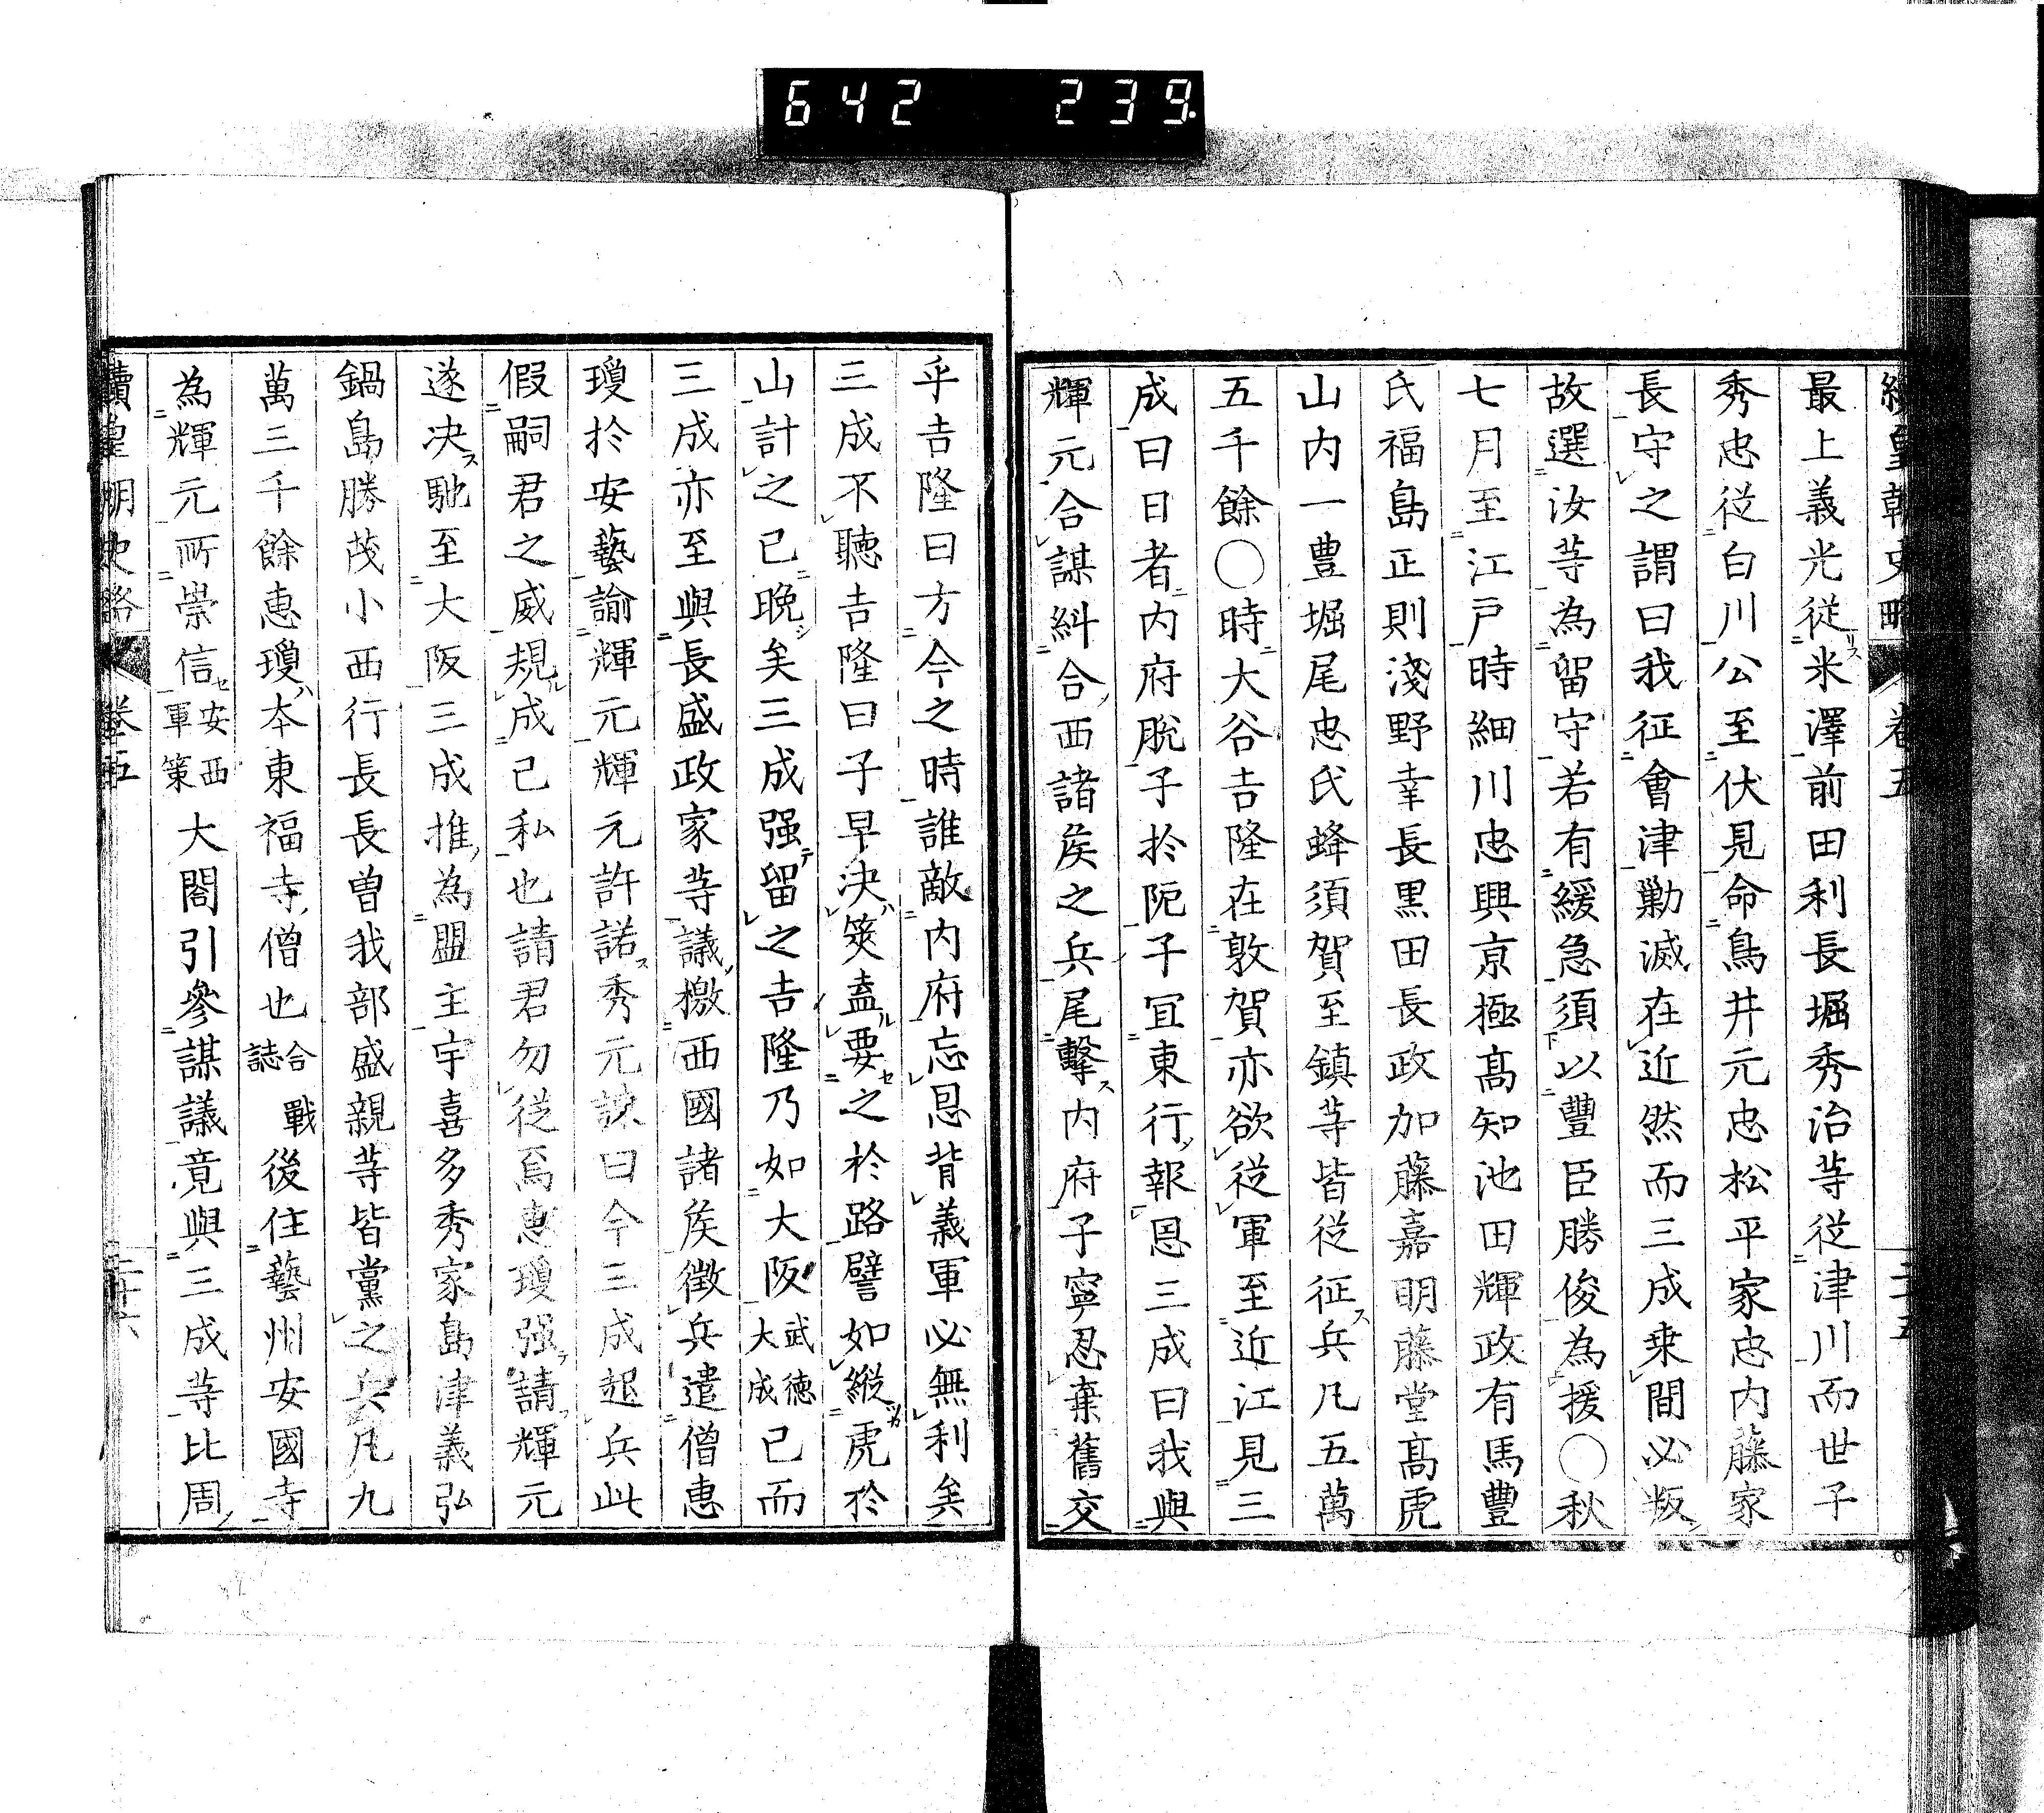 642 239.
續皇朝史略 卷五 二十五
最上義光從米澤前田利長堀秀治等從津川而世子
秀忠從白川公至伏見命鳥井元忠松平家忠内藤家
長守之謂曰我征會津勦滅在近然而三成乘間必叛
故選汝等為留守若有緩急須以豐臣勝俊為援〇秋
七月至江戸時細川忠興京極高知池田輝政有馬豐
氏福島正則淺野幸長黒田長政加藤嘉明藤堂高虎
山内一豊堀尾忠氏蜂須賀至鎮等皆從征兵凡五萬
五千餘〇時大谷吉隆在敦賀亦欲從軍至近江見三
成曰日者内府脱子於阨子宜東行報恩三成曰我與
輝元合謀糾合西諸矦之兵尾擊内府子寧忍棄舊交
乎吉隆曰方今之時誰敵内府忘恩背義軍必無利矣
三成不聽吉隆曰子早決筴盍要之於路譬如縱虎於
山計之已晩矣三成强留之吉隆乃如大阪武德大成已而
三成亦至與長盛政家等議檄西國諸矦徴兵遣僧惠
瓊於安藝諭輝元輝元許諾秀元諫曰今三成起兵此
假嗣君之威規成己私也請君勿從焉惠瓊强請輝元
遂决馳至大阪三成推為盟主宇喜多秀家島津義弘
鍋島勝茂小西行長長曾我部盛親等皆黨之兵凡九
萬三千餘惠瓊本東福寺僧也合戰誌後住藝州安國寺
為輝元所崇信安西軍策大閤引參謀議竟與三成等比周
續皇朝史略 卷五 二十六